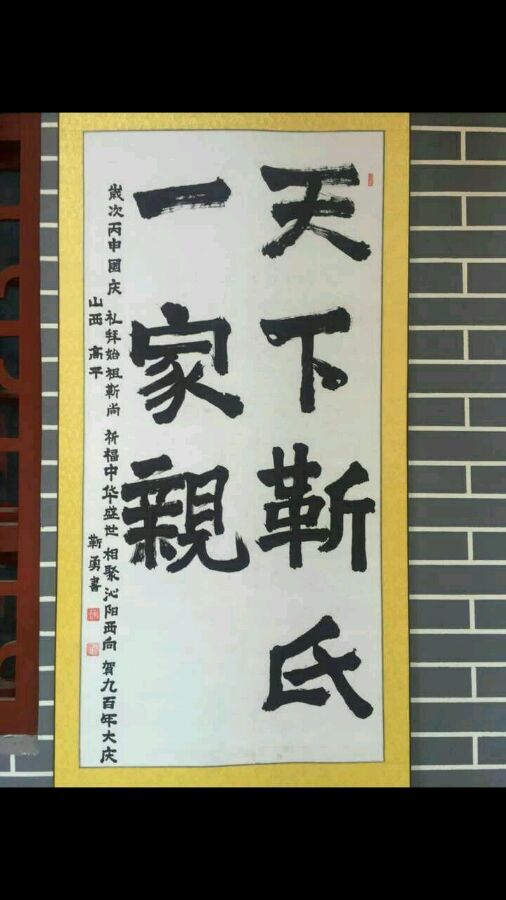 天下靳氏
一家親
歲次丙申國庆 礼拜始祖靳尚 祈福中华盛世 相聚沁阳西向 賀九百年大庆
山西 高平 靳勇書